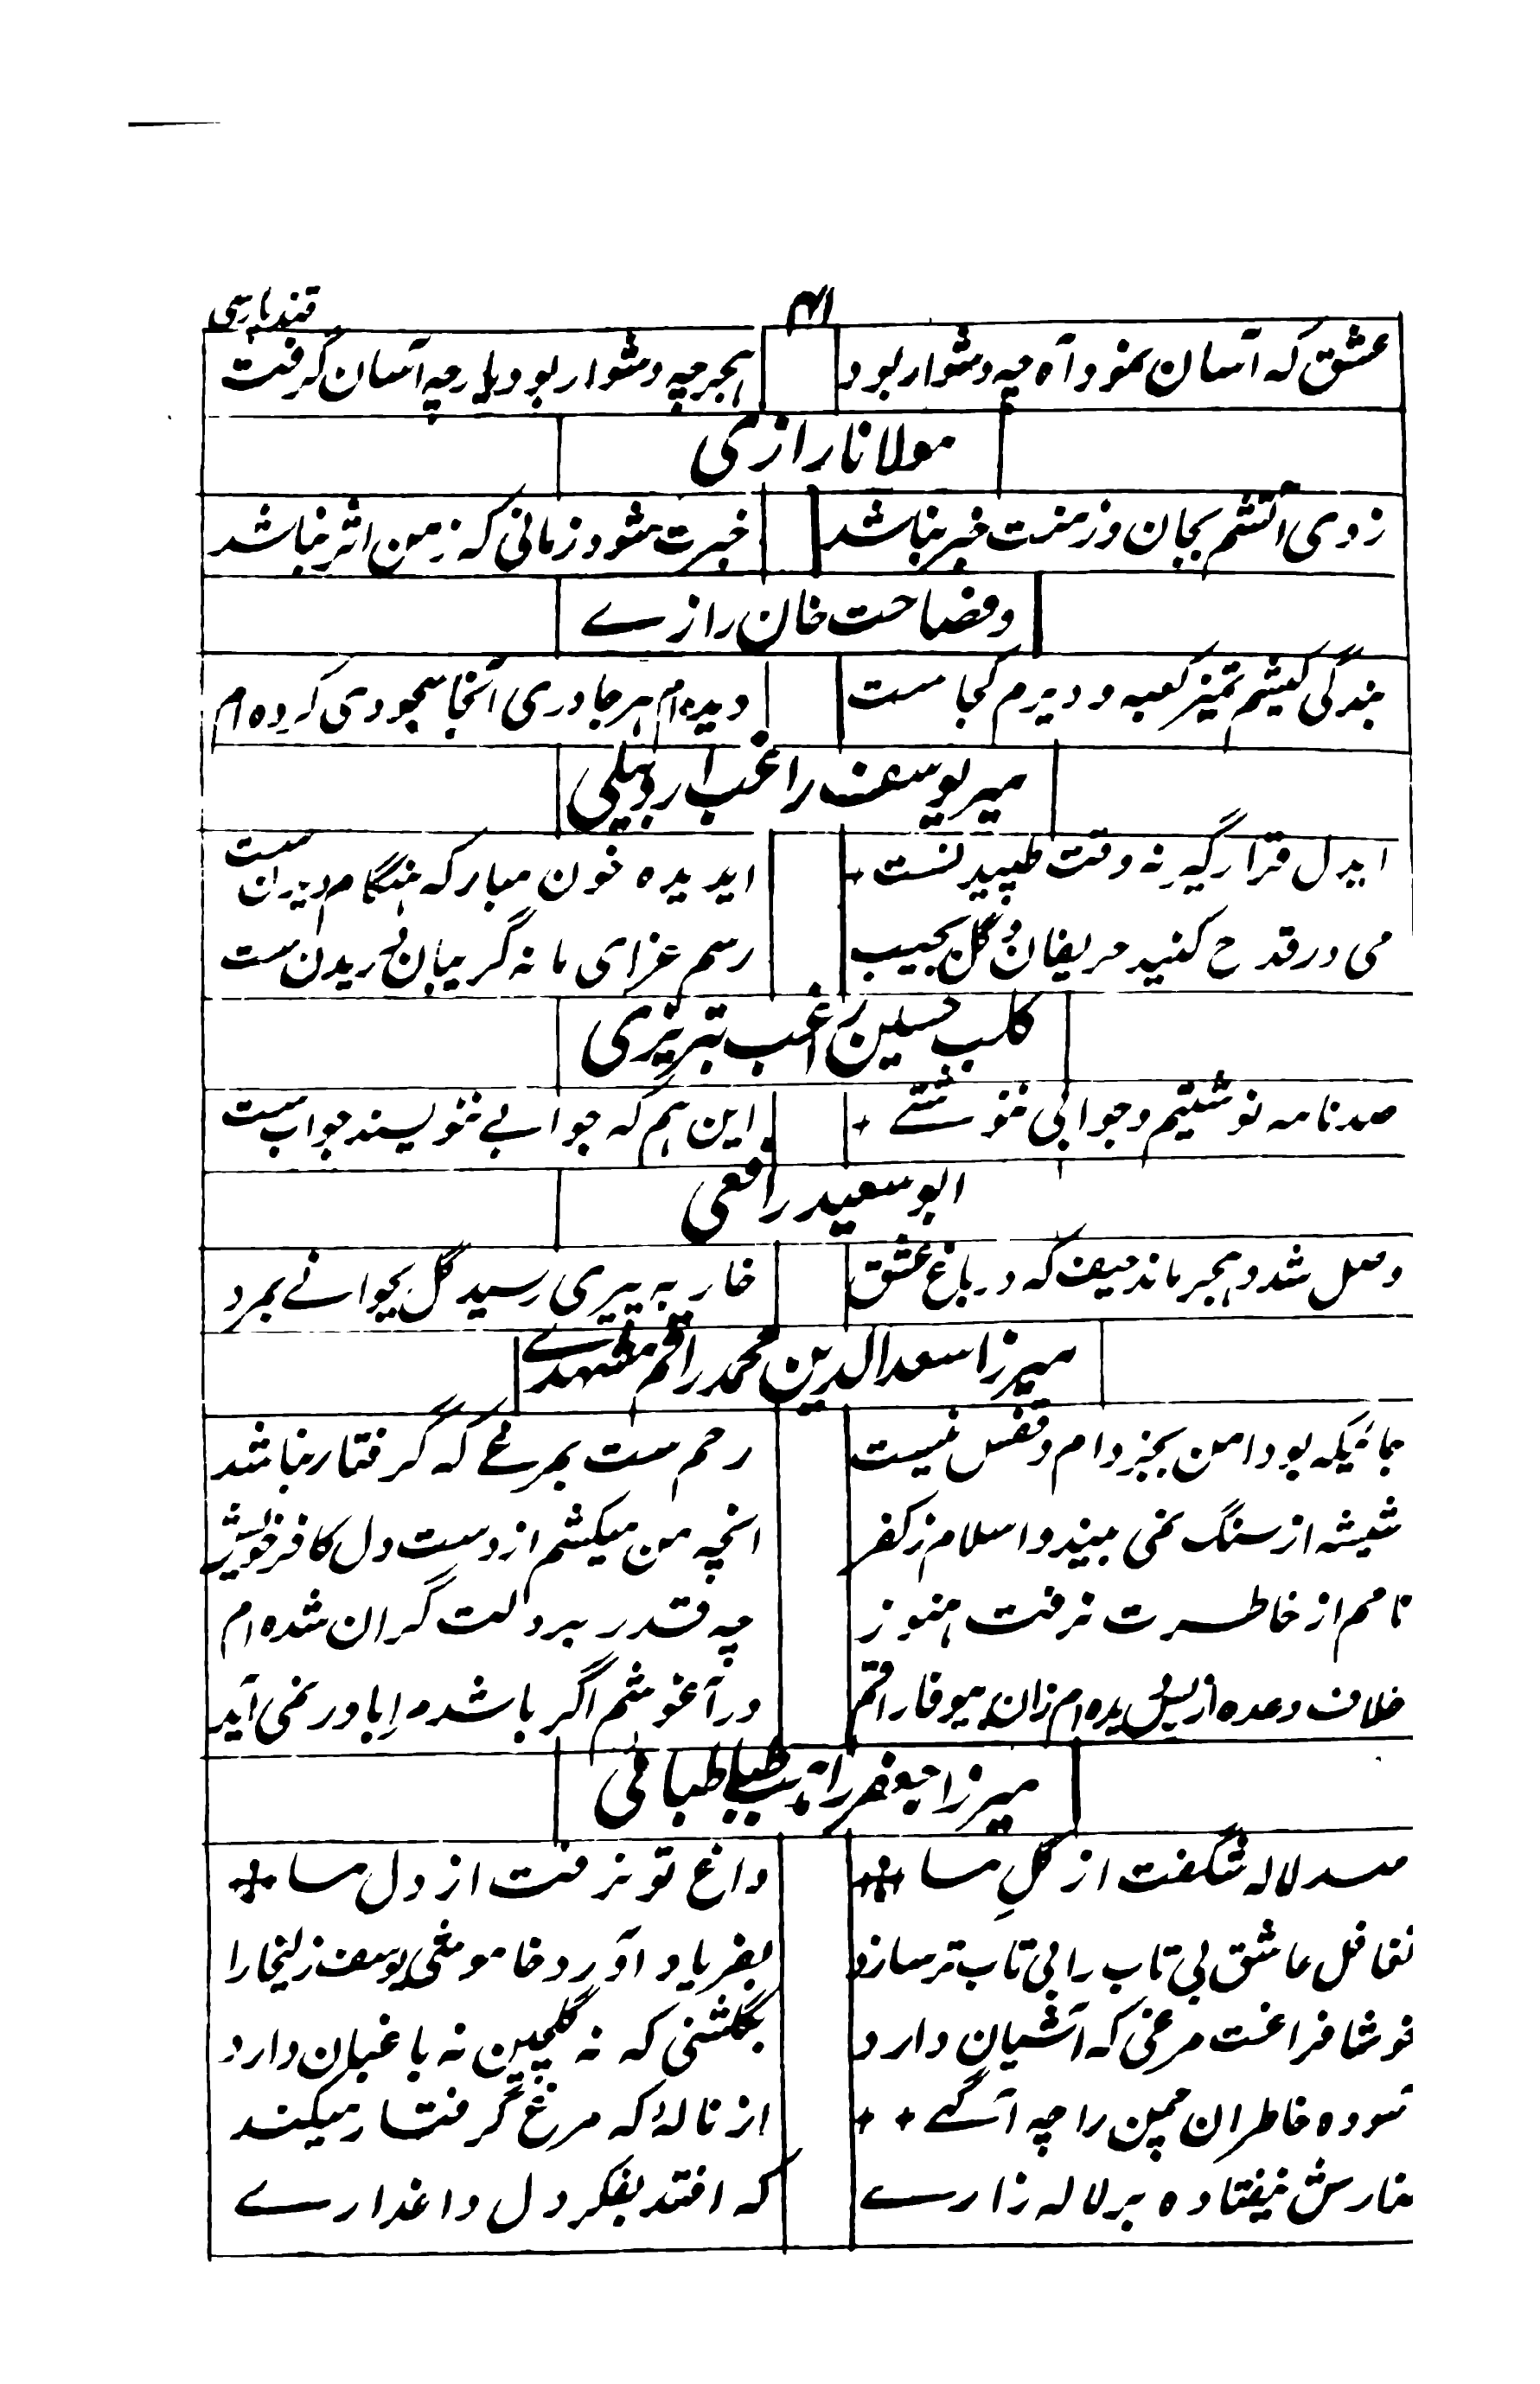 قند پارسی
۸۱
عشق که آسان نمود آه چه دشوار بود هجر چه دشوار بود یار چه آسان گرفت
مولانا رازی
زدی آتشم بجان وز منت خبر نباشد خبرت شود زمانی که ز من اثر نباشد
فصاحت خان رازے
بندگی کیشم تمیز کعبه و دیرم کجاست دیده ام هر جا دری آنجا سجودی کرده ام
میر یوسف راغب اردبیلی
ایدل قرار گیر نه وقت طپیدنست ایدیده خون مبار که هنگام دیدن ست
می در قدح کنید حریفان و گل بجیب رسم عزای ما نه گریبان دریدن ست
کلب حسین راغب تبریزی
صد نامه نوشتیم و جوابی ننوشتے این هم که جوابے ننویسند جواب ست
ابو سعید رافعی
وصل شد و هجر ماند حیف که در باغ عشق خار به پیری رسید گل بجوانے بمرد
میرزا سعدالدین محمد راقم مشهدے
جائیکه بود امن بجز دام و قفس نیست رحم ست بمرغے که گرفتار نباشد
شیشه از سنگ نمی بیند و اسلام ز کفر آنچه من میکشم از دست دل کافر خویش
نامم از خاطرت نرفت هنوز چه قدر بر دلت گران شده ام
خلاف وعده از بس دیده ام زان بیوفا راقم در آغوشم اگر باشد مرا باور نمی آید
میرزا جعفر راهب طباطبائی
صد لاله شگفت از گلِ ما داغ تو نرفت از دل ما
تغافل عاشق بی تاب را بی تاب تر سازد بفریاد آورد خاموشی یوسف زلیخا را
خوشا فراغت مرغی که آشیان دارد بگلشنی که نه گلچین نه باغبان دارد
آسوده خاطران چمن را چه آگهے از نالهٔ که مرغ گرفتار میکند
نیفتاده بر لاله زارے که افتد بفکر دل داغدارے